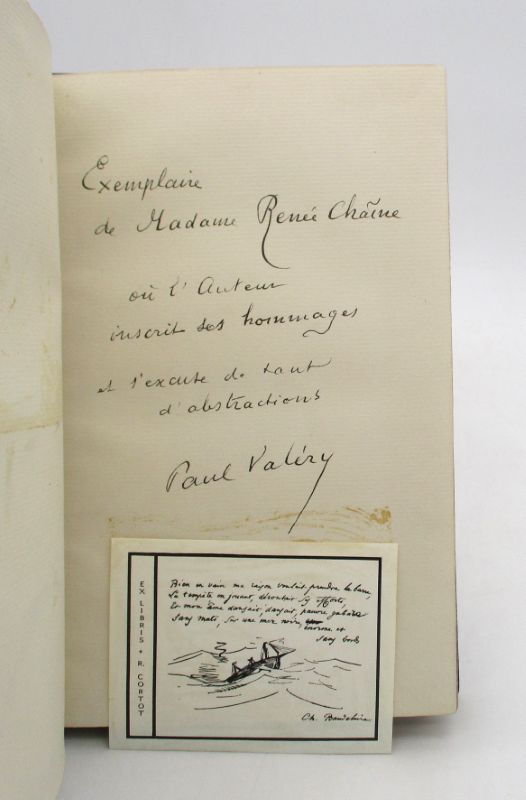 Exemplaire
de Madame Renée Chaîne
où l'Auteur
inscrit ses hommages
et s'excuse de tant
d'abstractions
Paul Valéry
EX LIBRIS * R. CORTOT
Bien en vain ma raison voulait prendre la barre,
La tempête en jouant, déroutait ses efforts,
Et mon âme dansait, dansait, pauvre gabare
Sans mats, sur une mer noire, énorme et
sans bords
Ch. Baudelaire